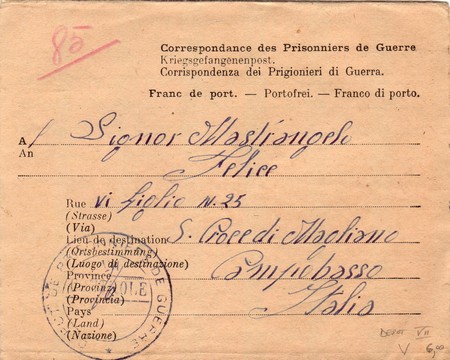 85
Correspondance des Prisonniers de Guerre
Kriegsgefangenenpost.
Corrispondenza dei Prigionieri di Guerra.
Franc de port. — Portofrei. — Franco di porto.
A / Signor Mastrangelo
An Felice
Rue Vi Giglio N. 25
(Strasse)
(Via)
Lieu de destination S. Croce di Magliano
(Ortsbestimmung)
(Luogo di destinazione)
Province Campobasso
(Provinz)
(Provincia)
Pays Italia
(Land)
(Nazione)
DE GUERRE
VII
V 6,00